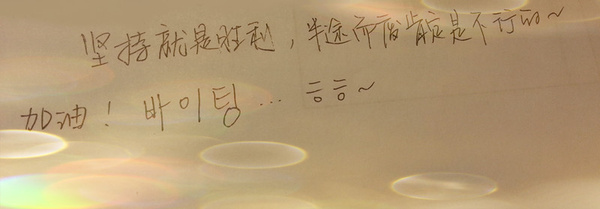 坚持就是胜利，半途而废肯定是不行的~
加油！바이팅… 흥흥~